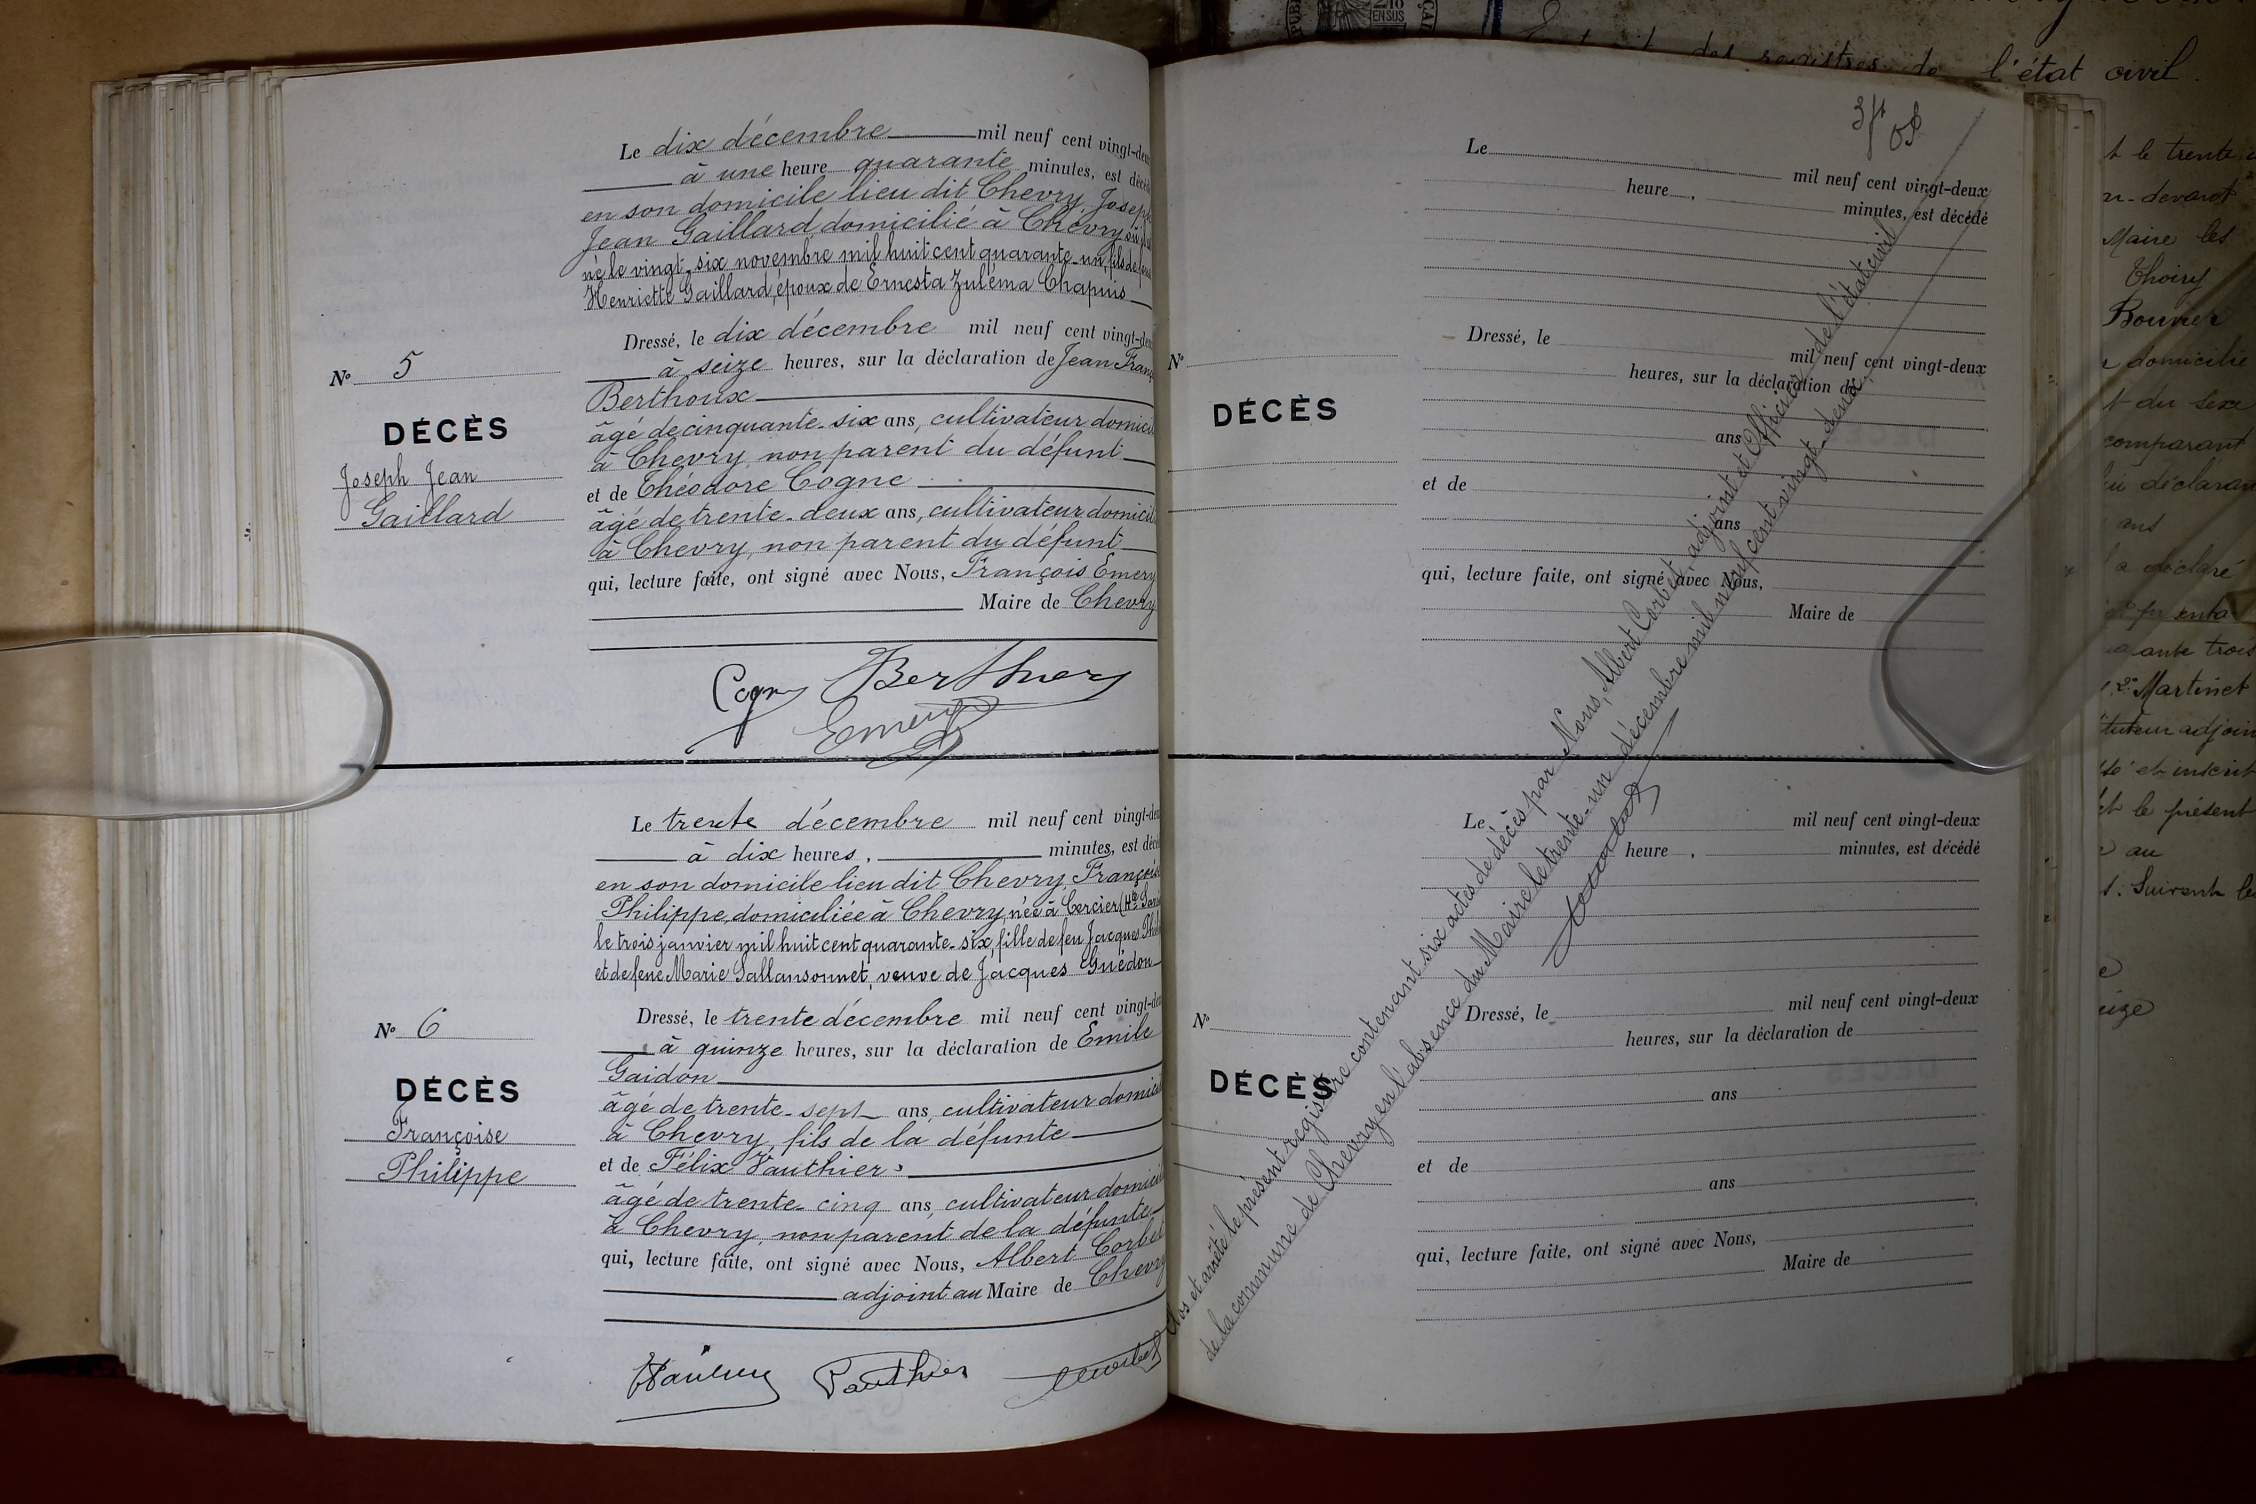 Le dix décembre mil neuf cent vingt-deux
à une heure quarante minutes, est décédé
en son domicile lieu dit Chevry, Joseph
Jean Gaillard, domicilié à Chevry où il est
né le vingt-six novembre mil huit cent quarante-un, fils de feue
Henriette Gaillard, époux de Ernesta Zuléma Chapuis
Dressé, le dix décembre mil neuf cent vingt-deux
à seize heures, sur la déclaration de Jean Franç
Berthoux
âgé de cinquante-six ans, cultivateur domicil
à Chevry, non parent du défunt
et de Théodore Cogne
âgé de trente-deux ans, cultivateur domicil
à Chevry, non parent du défunt
qui, lecture faite, ont signé avec Nous, François Emery
Maire de Chevry
No 5
DÉCÈS
Joseph Jean
Gaillard
Emery
Le trente décembre mil neuf cent vingt-deux
à dix heures, minutes, est décé
en son domicile lieu dit Chevry, Françoise
Philippe, domiciliée à Chevry, née à Cercier (Hte Savoie
le trois janvier mil huit cent quarante-six, fille de feu Jacques
et de feue Marie Sallansonnet, veuve de Jacques Guédon
Dressé, le trente décembre mil neuf cent vingt-deux
à quinze heures, sur la déclaration de Emile
Gaidon
âgé de trente-sept ans, cultivateur domicil
à Chevry, fils de la défunte
et de Félix Vauthier
âgé de trente-cinq ans, cultivateur domicil
à Chevry, non parent de la défunte
qui, lecture faite, ont signé avec Nous, Albert Corbet
adjoint au Maire de Chevry
No 6
DÉCÈS
Françoise
Philippe
Le mil neuf cent vingt-deux
heure , minutes, est décédé
Dressé, le mil neuf cent vingt-deux
heures, sur la déclaration de
ans
et de
ans
qui, lecture faite, ont signé avec Nous,
Maire de
No
DÉCÈS
Le mil neuf cent vingt-deux
heure , minutes, est décédé
Dressé, le mil neuf cent vingt-deux
heures, sur la déclaration de
ans
et de
ans
qui, lecture faite, ont signé avec Nous,
Maire de
No
DÉCÈS
Clos et arrêté le présent registre contenant six actes de décès par Nous, Albert Corbet, adjoint et Officier de l'état civil
de la commune de Chevry en l'absence du Maire le trente-un décembre mil neuf cent vingt-deux.
des registres de l'état civil.
le trente
Maire les
Thoiry
domicilié
du sexe
comparant
déclarant
ans
a déclaré
trois
Martinet
adjoin
et inscrit
et le présent
au
Suivent les